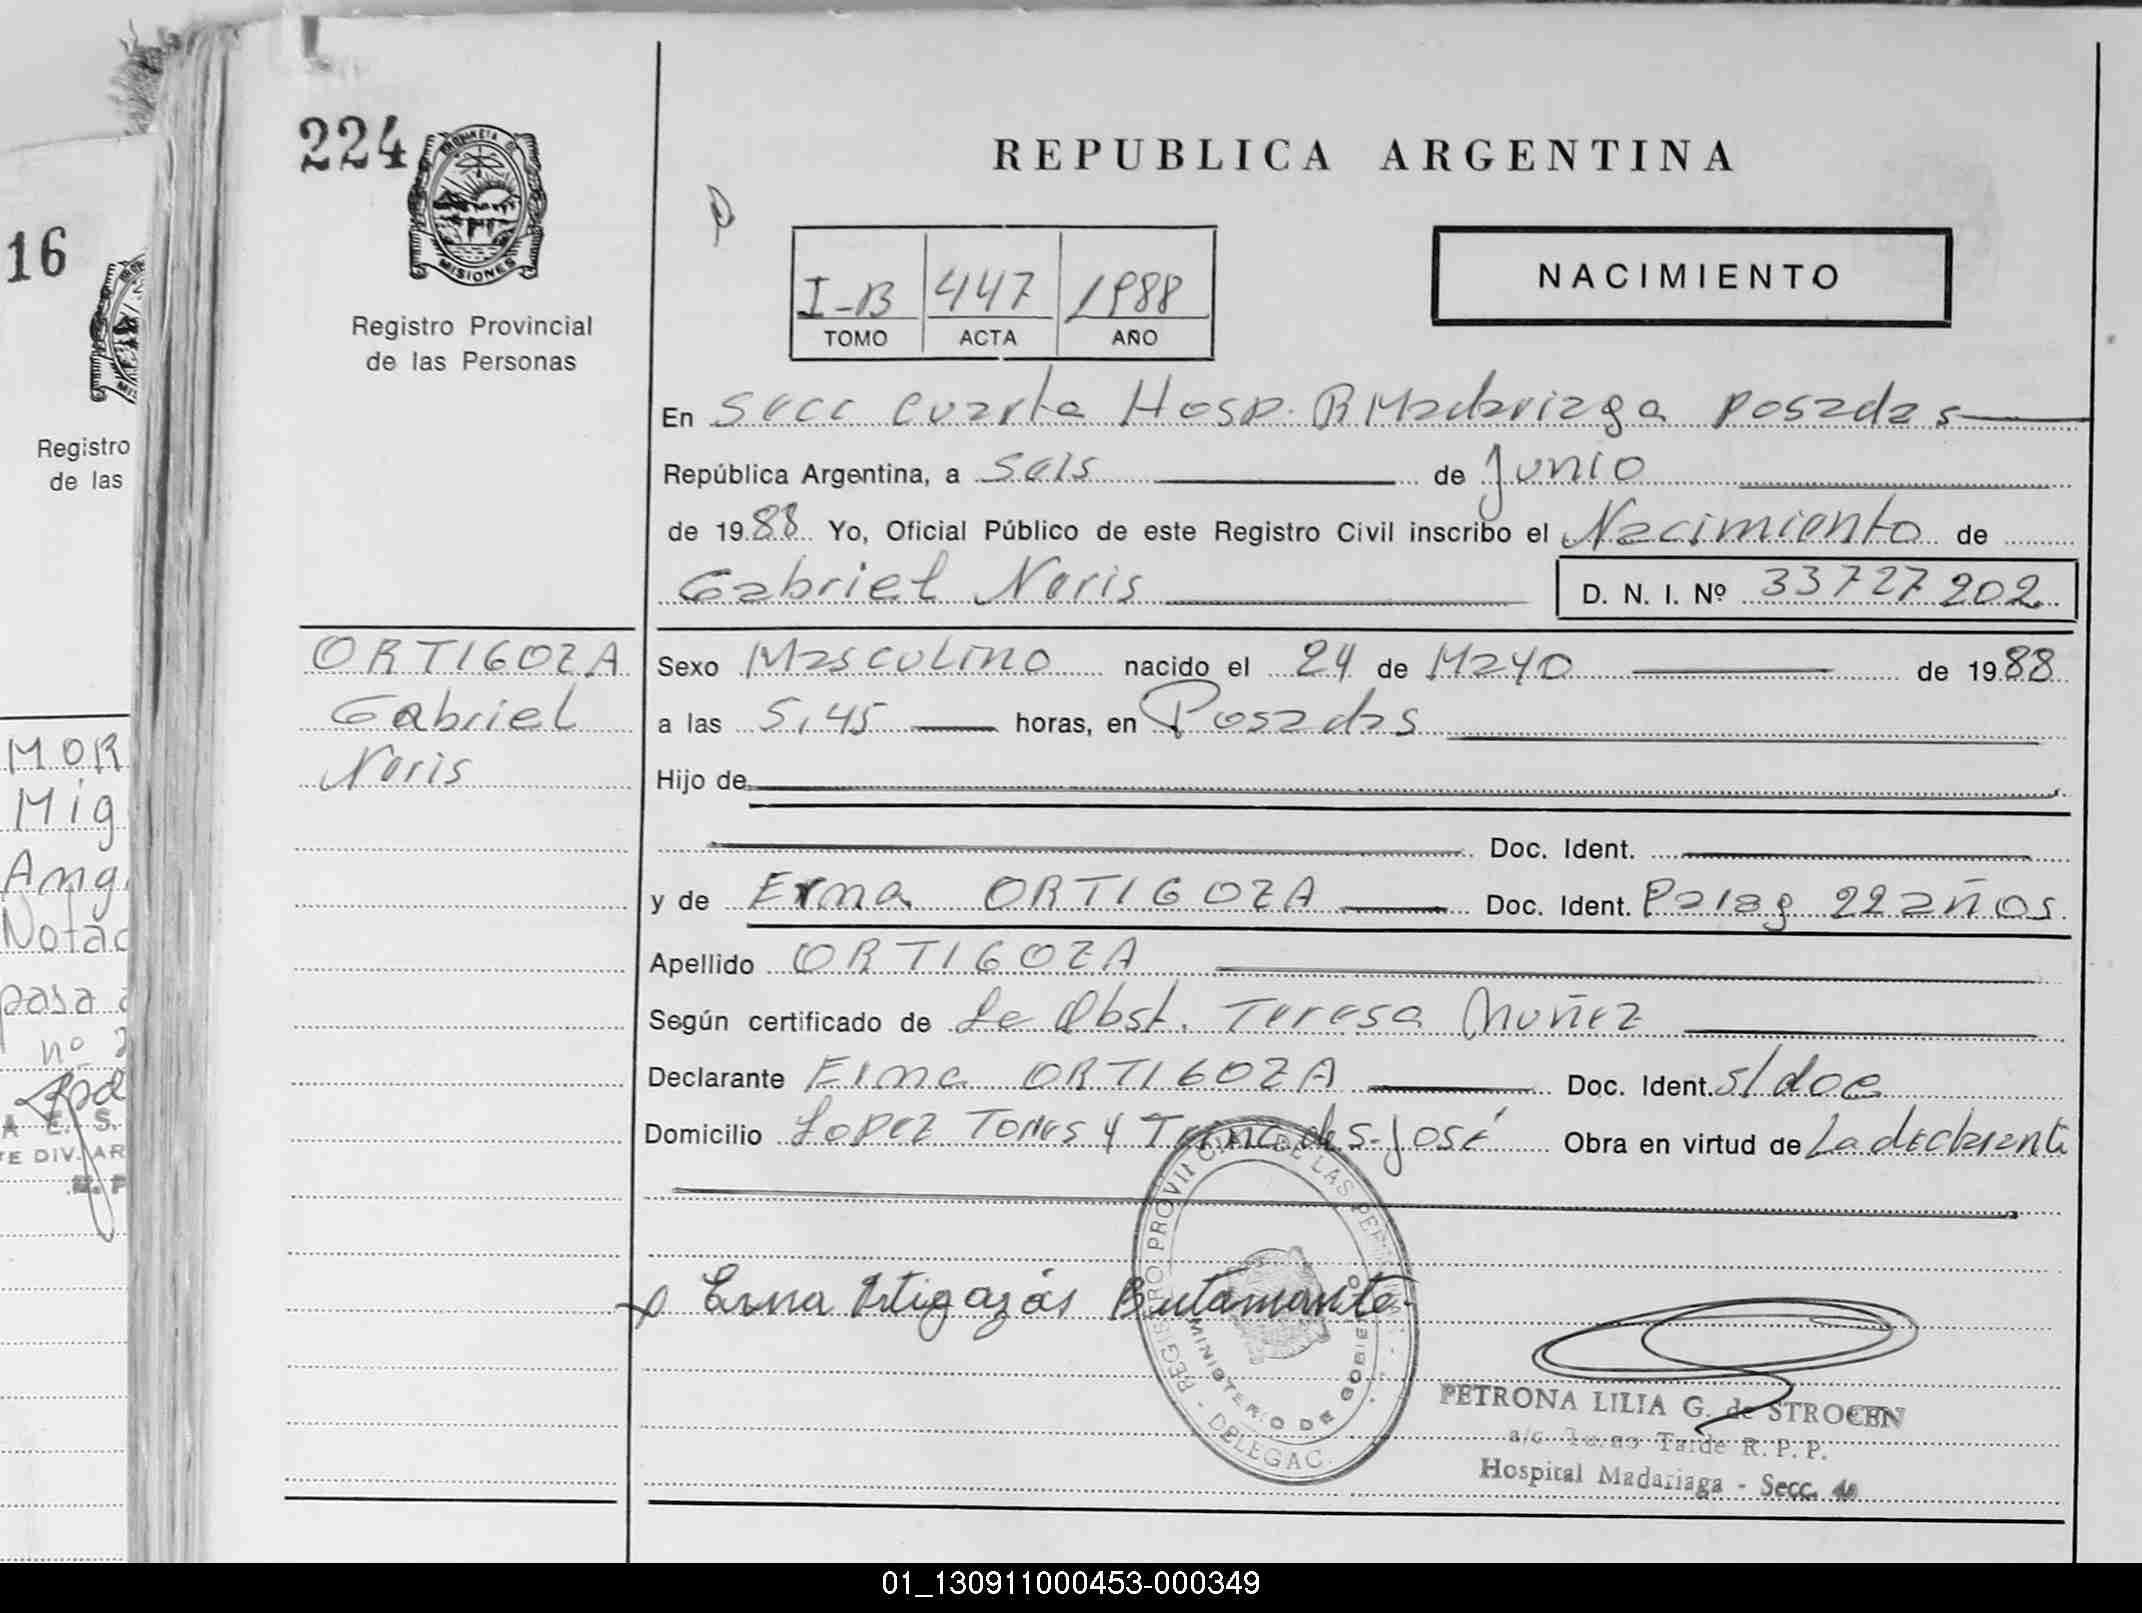 224
PROVINCIA DE
MISIONES
Registro Provincial
de las Personas
REPUBLICA ARGENTINA
I-B 447 1988
TOMO ACTA AÑO
NACIMIENTO
En Secc Cuarta Hosp. R Madariaga Posadas
República Argentina, a Seis de Junio
de 1988 Yo, Oficial Público de este Registro Civil inscribo el Nacimiento de
Gabriel Noris
D. N. I. Nº 33727202
ORTIGOZA
Gabriel
Noris
Sexo Masculino nacido el 24 de Mayo de 1988
a las 5,45 horas, en Posadas
Hijo de
Doc. Ident.
y de Erna ORTIGOZA Doc. Ident. Parag 22 años
Apellido ORTIGOZA
Según certificado de La Obst. Teresa Nuñez
Declarante Erna ORTIGOZA Doc. Ident. s/doc
Domicilio Lopez Torres y S. José Obra en virtud de La declarante
Erna Ortigozás Butamante
REGISTRO PROV CIVIL DE LAS PER
MINISTERIO DE GOBIERNO
DELEGAC.
PETRONA LILIA G. de STROCEN
a/c Turno Tarde R. P. P.
Hospital Madariaga - Secc. 4a
16
Registro
de las
MOR
Mig
Ang
Notac
pasa a
nº 2
A E. S.
E DIV. AR
01_130911000453-000349